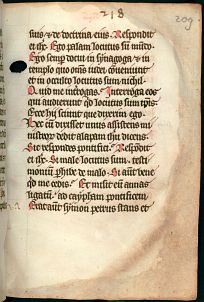 218
209
suis ⁊ de doctrina eius. Respondit
ei ihc̄. Ego palam locutus sū mūdo.
Ego semp docui in synagoga ⁊ in
templo quo om̄s iudei cōueniunt
et in occulto locutus sum nichil.
Quid me introgas. Interroga eos
qui audierunt qd locutus sum ip̄is.
Ecce hii sciunt que dixerim ego.
Hec cū dixisset unus assistens mi
nistror dedit alapam ihu dicens.
Sic respondes pontifici. Respōdit
ei ihc̄. Si male locutus sum. testi
monium phibe de malo. Si aut bene
qd me cedis. Et misit eum annas
ligatū ad caypham pontificem.
Erat aūt symon petrus stans et